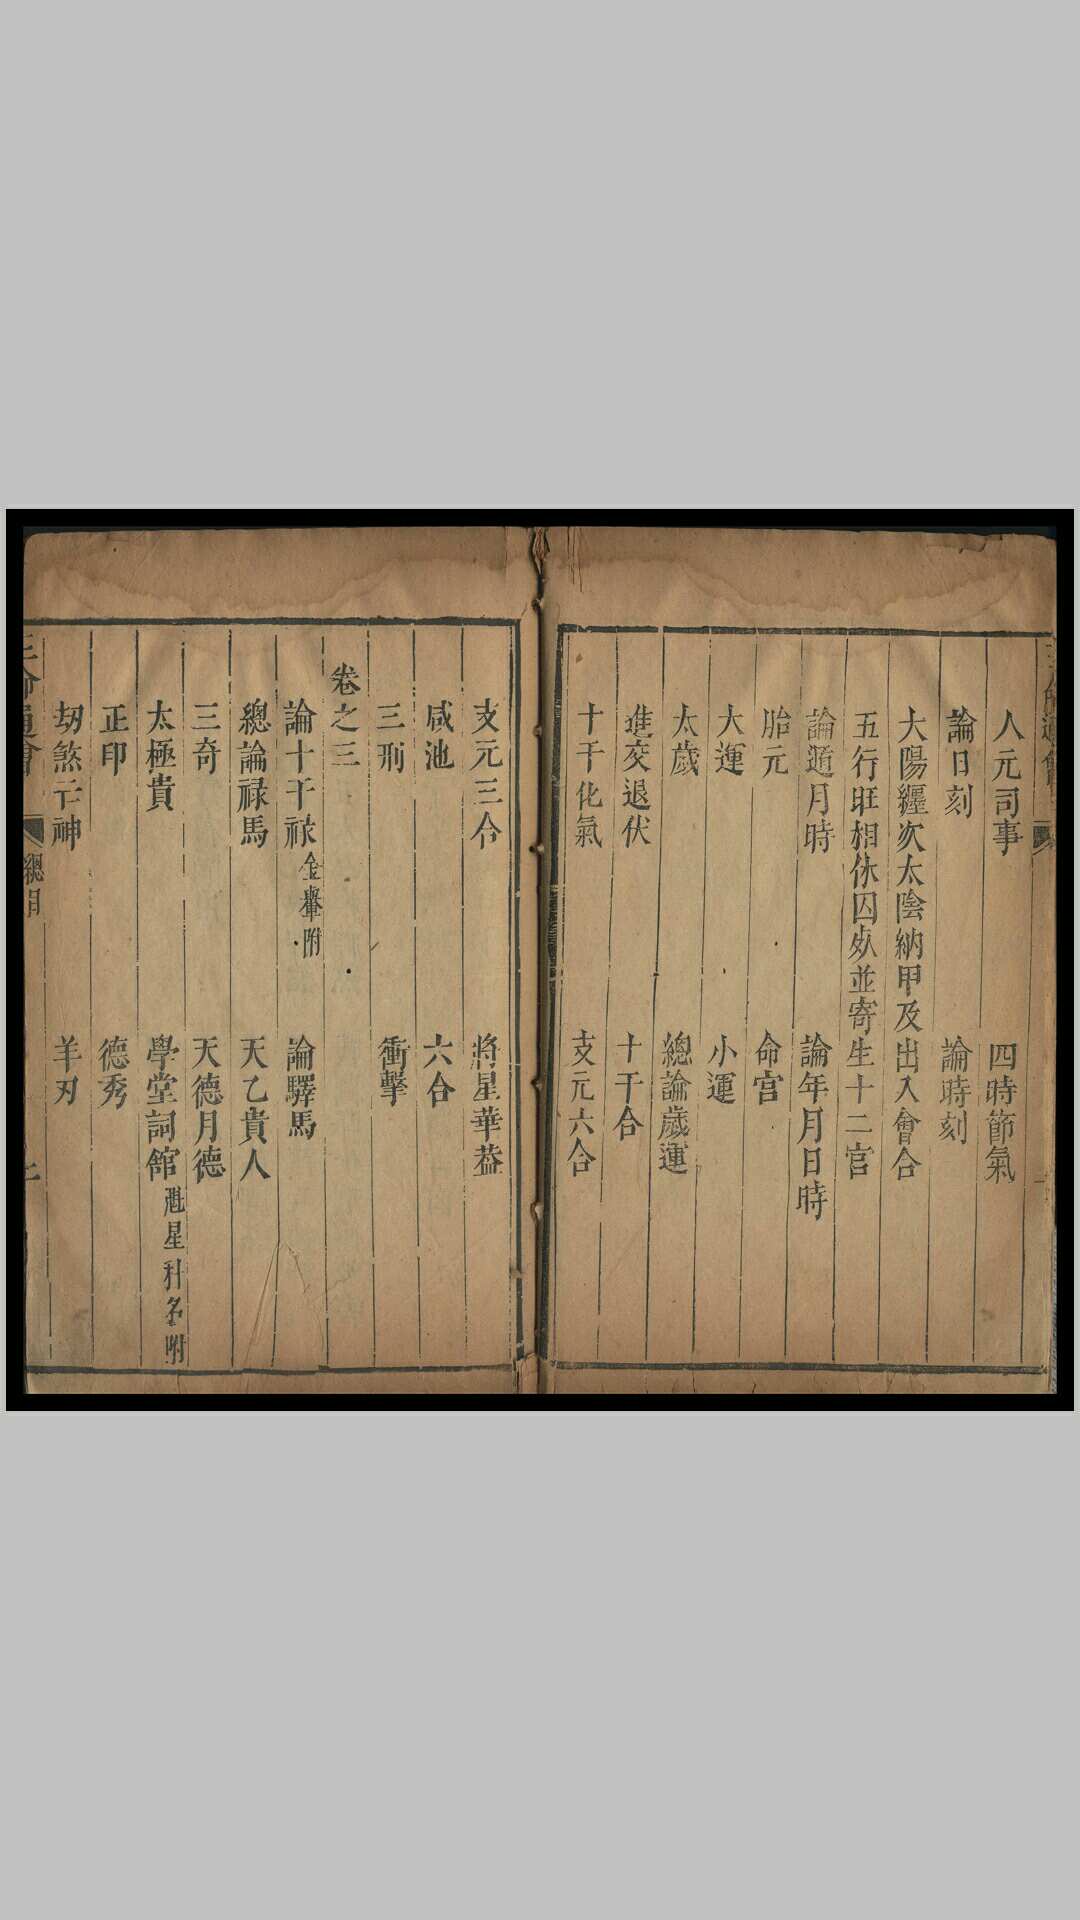 人元司事 四時節氣
論日刻 論時刻
大陽纏次太陰納甲及出入會合
五行旺相休囚死並寄生十二宫
論遁月時 論年月日時
胎元 命宫
大運 小運
太歲 總論歲運
進交退伏 十干合
十干化氣 支元六合
支元三合 將星華蓋
咸池 六合
三刑 衝擊
卷之三
論十干禄 金轝附 論驛馬
總論禄馬 天乙貴人
三奇 天德月德
太極貴 學堂詞館 魁星科名附
正印 德秀
劫煞亡神 羊刃
三命通會 總目